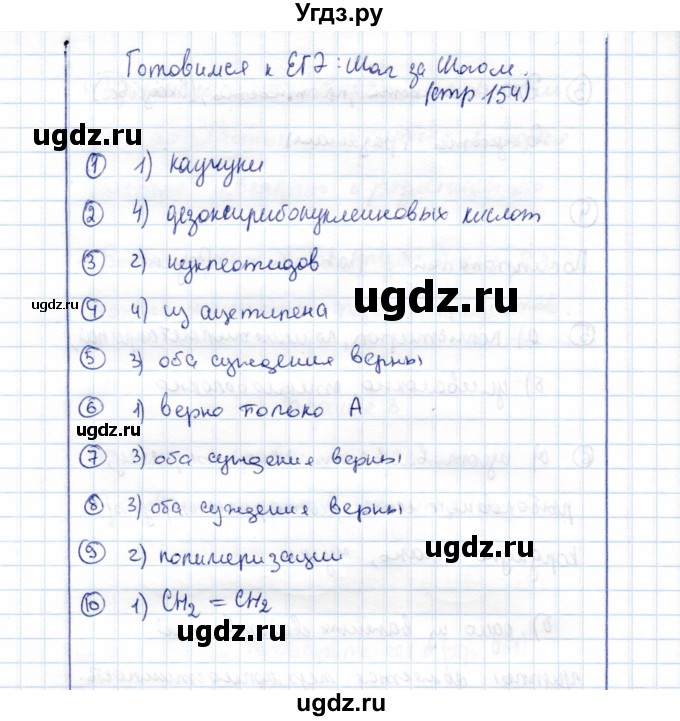 Угдз.ру
Готовимся к ЕГЭ: Шаг за Шагом.
(стр 154)
ugdz.ru
① 1) каучуки
② 4) дезоксирибонуклеиновых кислот
③ 2) нуклеотидов
ugdz.ru
ugdz.ru
④ 4) из ацетилена
⑤ 3) оба суждения верны
⑥ 1) верно только А
ugdz.ru
⑦ 3) оба суждения верны
⑧ 3) оба суждения верны
ugdz.ru
⑨ 2) полимеризации
⑩ 1) CH₂ = CH₂
ugdz.ru
ugdz.ru